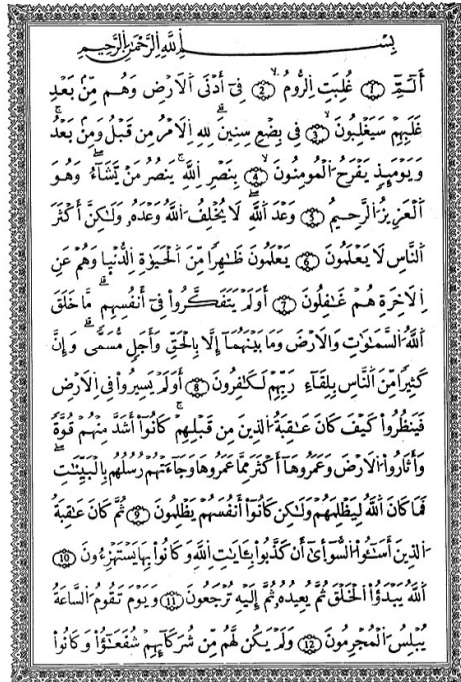 بِسْمِ اللَّهِ الرَّحْمَٰنِ الرَّحِيمِ
أَلَٓمِّٓ (1) غُلِبَتِ اِ۬لرُّومُ (2) فِےٓ أَدْنَى اَ۬لَارْضِ وَهُم مِّنۢ بَعْدِ
غَلَبِهِمْ سَيَغْلِبُونَ (3) فِے بِضْعِ سِنِينَۖ لِلهِ اِ۬لَامْرُ مِن قَبْلُ وَمِنۢ بَعْدُۖ
وَيَوْمَئِذٖ يَفْرَحُ اُ۬لْمُومِنُونَ (4) بِنَصْرِ اِ۬للَّهِۖ يَنصُرُ مَنْ يَّشَآءُۖ وَهُوَ
اَ۬لْعَزِيزُ اُ۬لرَّحِيمُ (5) وَعْدَ اَ۬للَّهِۖ لَا يُخْلِفُ اُ۬للَّهُ وَعْدَهُۥ وَلَٰكِنَّ أَكْثَرَ
اَ۬لنَّاسِ لَا يَعْلَمُونَ (6) يَعْلَمُونَ ظَٰهِراٗ مِّنَ اَ۬لْحَيَوٰةِ اِ۬لدُّنْي۪ا وَهُمْ عَنِ
اِ۬لَاخِرَةِ هُمْ غَٰفِلُونَ (7) أَوَلَمْ يَتَفَكَّرُواْ فِےٓ أَنفُسِهِمۖ مَّا خَلَقَ
اَ۬للَّهُ اُ۬لسَّمَٰوَٰتِ وَالَارْضَ وَمَا بَيْنَهُمَآ إِلَّا بِالْحَقِّ وَأَجَلٖ مُّسَمّيٗۖ وَإِنَّ
كَثِيراٗ مِّنَ اَ۬لنَّاسِ بِلِقَآءِےْ رَبِّهِمْ لَكَٰفِرُونَ (8) أَوَلَمْ يَسِيرُواْ فِے اِ۬لَارْضِ
فَيَنظُرُواْ كَيْفَ كَانَ عَٰقِبَةُ اُ۬لذِينَ مِن قَبْلِهِمْۖ كَانُوٓاْ أَشَدَّ مِنْهُمْ قُوَّةٗ
وَأَثَارُواْ اُ۬لَارْضَ وَعَمَرُوهَآ أَكْثَرَ مِمَّا عَمَرُوهَا وَجَآءَتْهُمْ رُسُلُهُم بِالْبَيِّنَٰتِۖ
فَمَا كَانَ اَ۬للَّهُ لِيَظْلِمَهُمْ وَلَٰكِن كَانُوٓاْ أَنفُسَهُمْ يَظْلِمُونَ (9) ثُمَّ كَانَ عَٰقِبَةُ
اُ۬لذِينَ أَسَٰٓـُٔواْ اُ۬لسُّوٓأ۪يٰٓ أَن كَذَّبُواْ بِـَٔايَٰتِ اِ۬للَّهِ وَكَانُواْ بِهَا يَسْتَهْزِءُونَ (10)
اَ۬للَّهُ يَبْدَؤُاْ اُ۬لْخَلْقَ ثُمَّ يُعِيدُهُۥ ثُمَّ إِلَيْهِ تُرْجَعُونَ (11) وَيَوْمَ تَقُومُ اُ۬لسَّاعَةُ
يُبْلِسُ اُ۬لْمُجْرِمُونَ (12) وَلَمْ يَكُن لَّهُم مِّن شُرَكَآئِهِمْ شُفَعَٰٓؤُاْ وَكَانُواْ